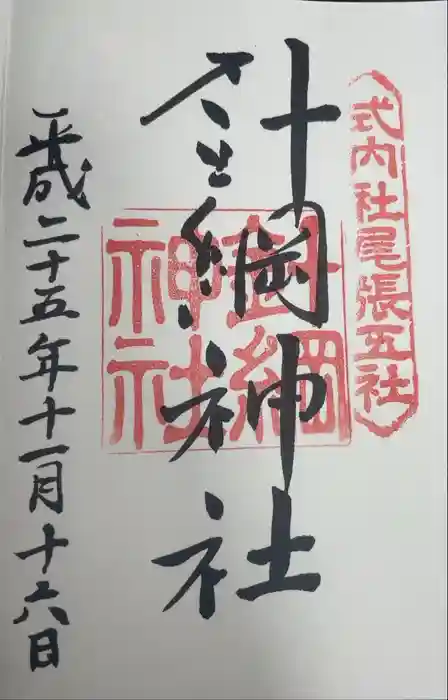 式内社尾張五社
針綱神社
針綱神社
平成二十五年十一月十六日